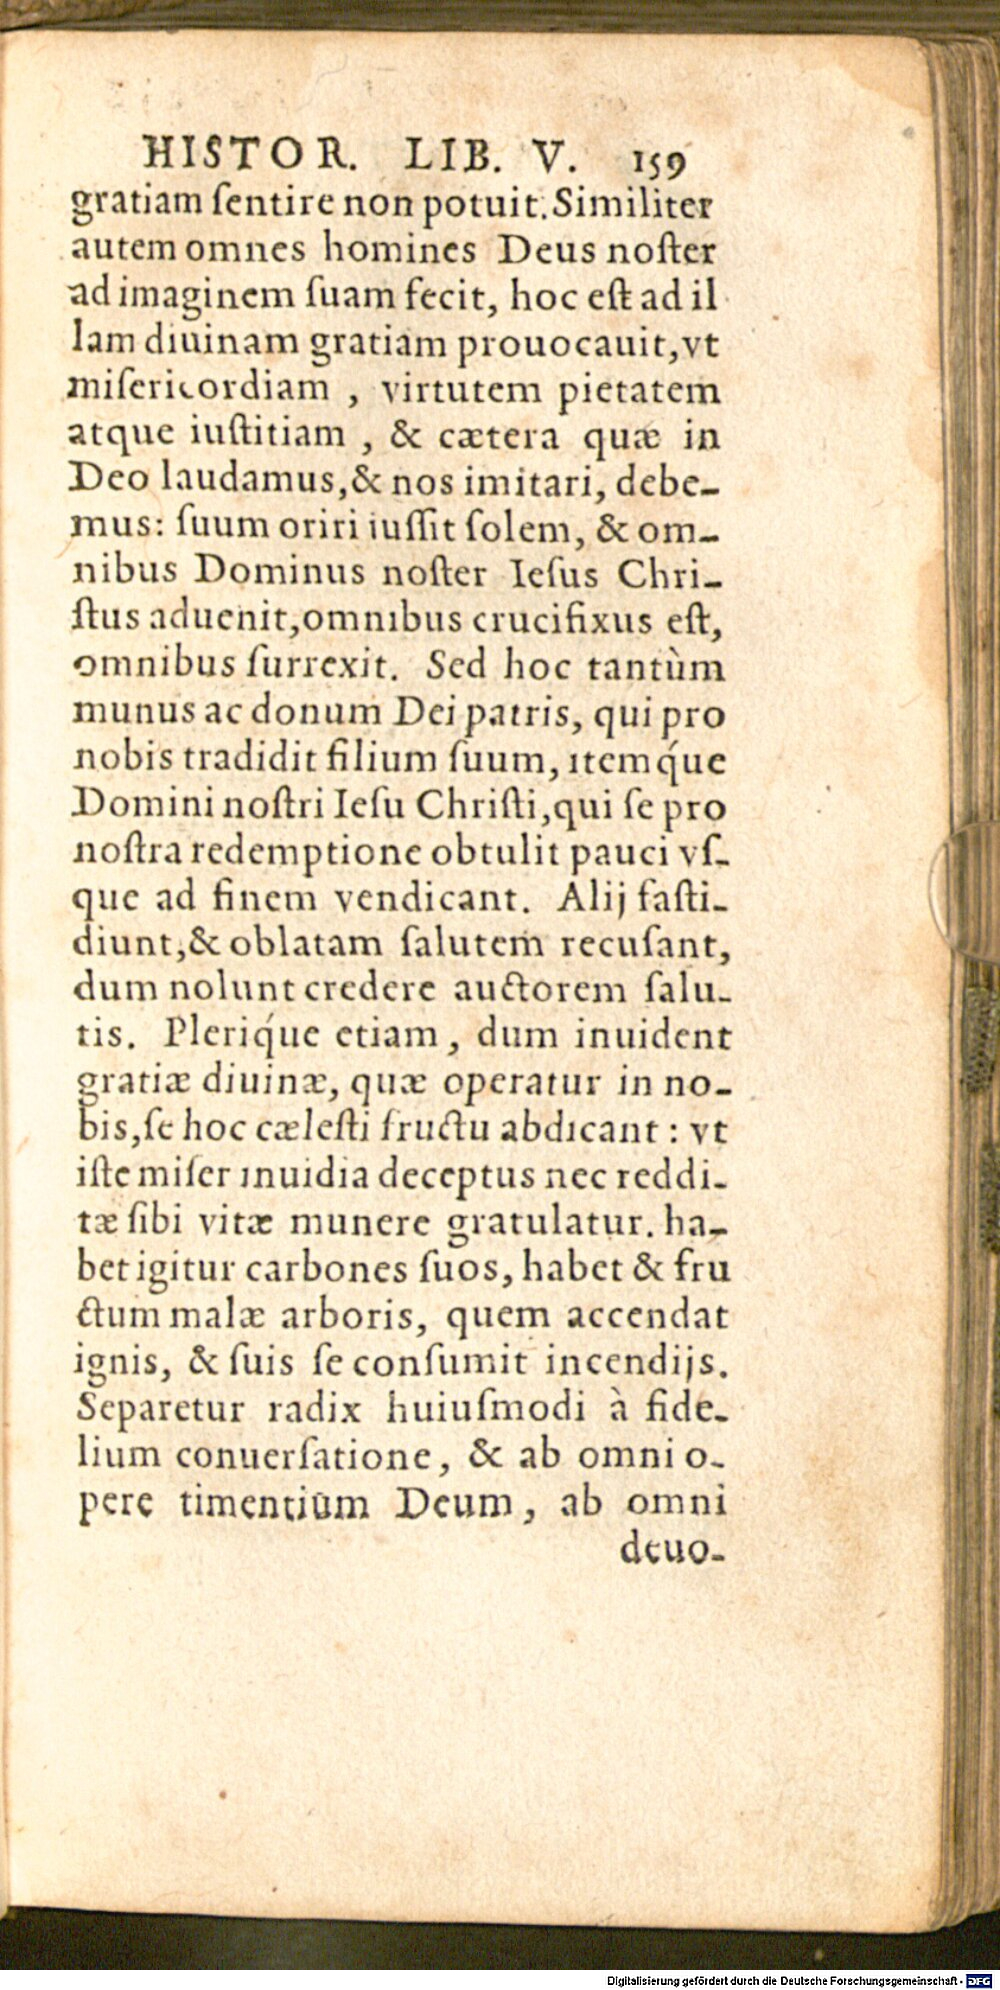 HISTOR. LIB. V. 159
gratiam ſentire non potuit. Similiter
autem omnes homines Deus noſter
ad imaginem ſuam fecit, hoc eſt ad il
lam diuinam gratiam prouocauit, vt
miſericordiam , virtutem pietatem
atque iuſtitiam , & cætera quæ in
Deo laudamus, & nos imitari, debe-
mus: ſuum oriri iuſſit ſolem, & om-
nibus Dominus noſter Ieſus Chri-
ſtus aduenit, omnibus crucifixus eſt,
omnibus ſurrexit. Sed hoc tantùm
munus ac donum Dei patris, qui pro
nobis tradidit filium ſuum, itemq́ue
Domini noſtri Ieſu Chriſti, qui ſe pro
noſtra redemptione obtulit pauci vſ-
que ad finem vendicant. Alij faſti-
diunt, & oblatam ſalutem recuſant,
dum nolunt credere auctorem ſalu-
tis. Pleriq́ue etiam, dum inuident
gratiæ diuinæ, quæ operatur in no-
bis, ſe hoc cæleſti fructu abdicant : vt
iſte miſer inuidia deceptus nec reddi-
tæ ſibi vitæ munere gratulatur. ha-
bet igitur carbones ſuos, habet & fru
ctum malæ arboris, quem accendat
ignis, & ſuis ſe conſumit incendijs.
Separetur radix huiuſmodi à fide-
lium conuerſatione, & ab omni o-
pere timentium Deum, ab omni
deuo-
Digitalisierung gefördert durch die Deutsche Forschungsgemeinschaft - DFG